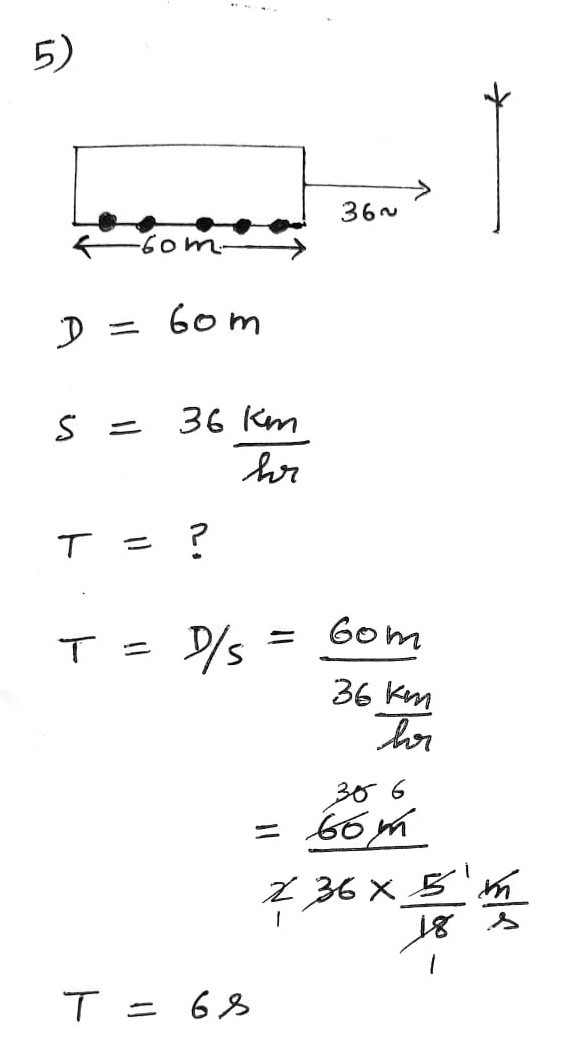 5)
36~
60m
D = 60 m
S = 36 Km/hr
T = ?
T = D/S = 60m / 36 Km/hr
30 6
= 60 m
2 36 × 5 1 m
1 18 s
1
T = 6 s